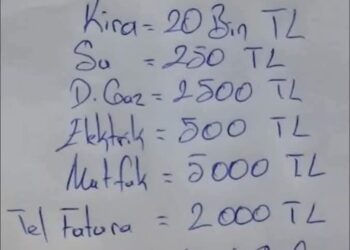 Kira = 20 Bin TL
Su = 250 TL
D. Gaz = 2500 TL
Elektrik = 500 TL
Mutfak = 5000 TL
Tel Fatura = 2000 TL